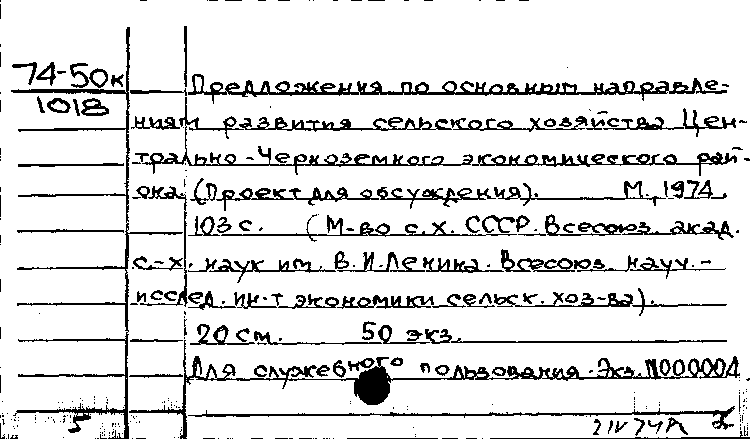 74-50к
1018
Предложения по основным направле-
ниям развития сельского хозяйства Цен-
трально-Черноземного экономического рай-
она. (Проект для обсуждения). М., 1974.
103 с. (М-во с.х. СССР. Всесоюз. акад.
с.-х. наук им. В.И.Ленина. Всесоюз. науч.-
исслед. ин-т экономики сельск. хоз-ва).
20 см. 50 экз.
Для служебного пользования. Экз. №000004.
5